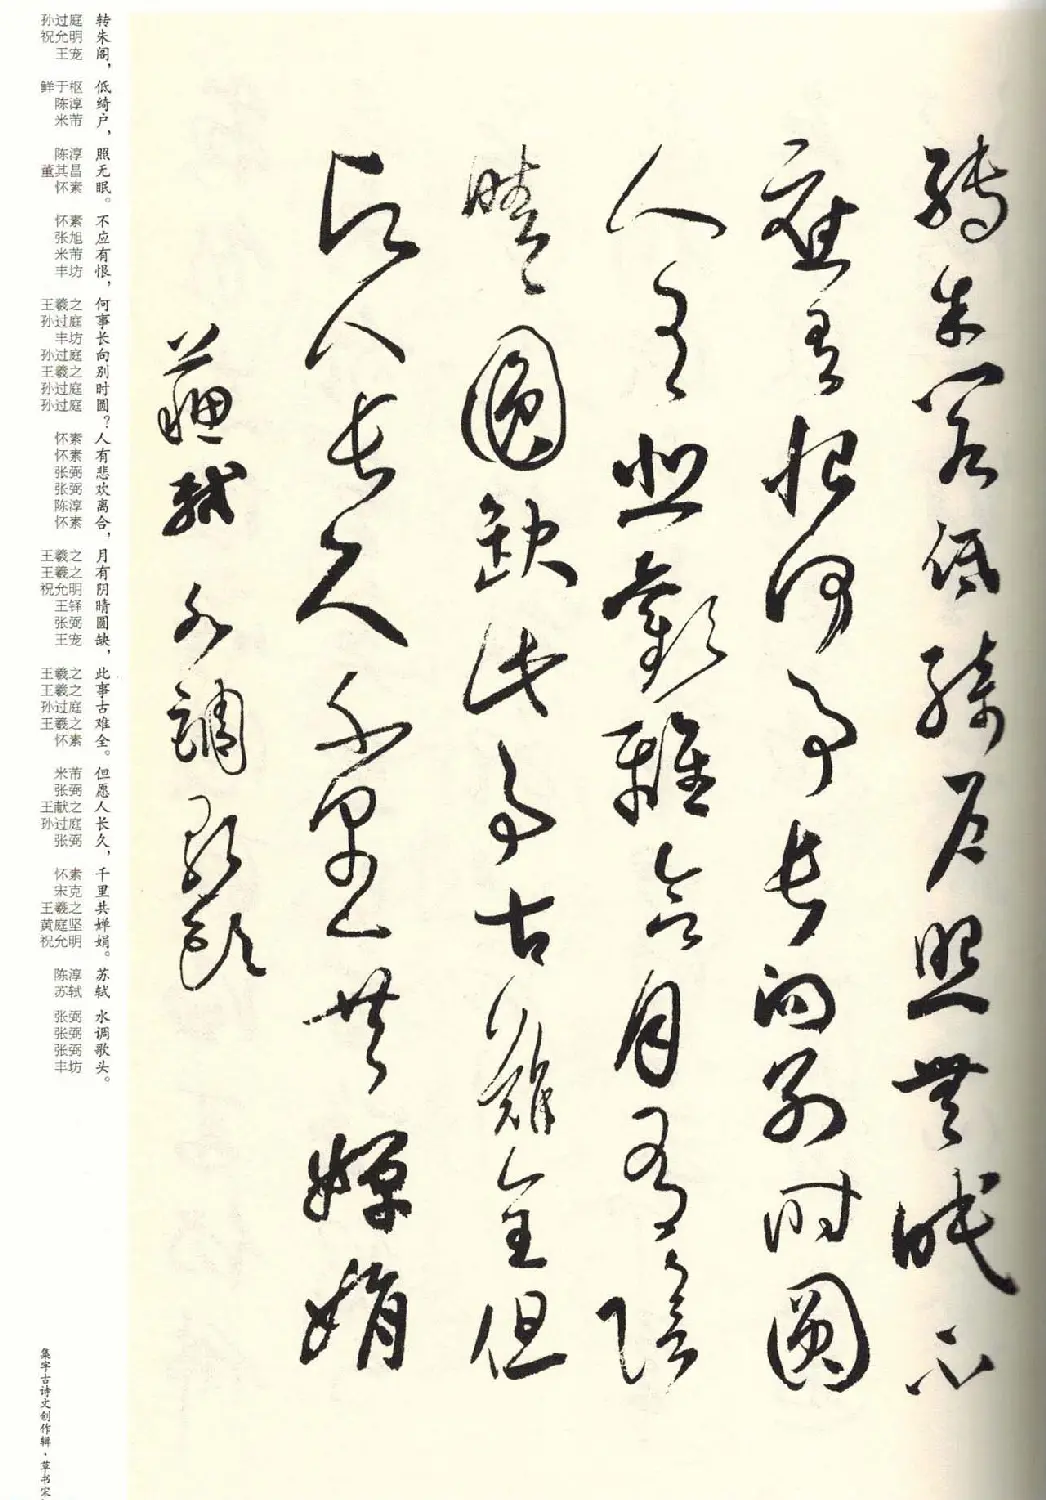 轉朱閣低綺戶照無眠不
應有恨何事長向別時圓
人有悲歡離合月有陰
晴圓缺此事古難全但
願人長久千里共嬋娟
蘇軾 水調歌頭
转朱阁，
孙过庭 祝允明 王宠
低绮户，
鲜于枢 陈淳 米芾
照无眠。
陈淳 董其昌 怀素
不应有恨，
怀素 张旭 米芾 丰坊
何事长向别时圆？
王羲之 孙过庭 丰坊 孙过庭 王羲之 孙过庭 孙过庭
人有悲欢离合，
怀素 怀素 张弼 张弼 陈淳 怀素
月有阴晴圆缺，
王羲之 王羲之 祝允明 王铎 张弼 王宠
此事古难全。
王羲之 王羲之 孙过庭 王羲之 怀素
但愿人长久，
米芾 张弼 王献之 孙过庭 张弼
千里共婵娟。
怀素 宋克 王羲之 黄庭坚 祝允明
苏轼
陈淳 苏轼
水调歌头。
张弼 张弼 张弼 丰坊
集字古诗文创作辑·草书宋